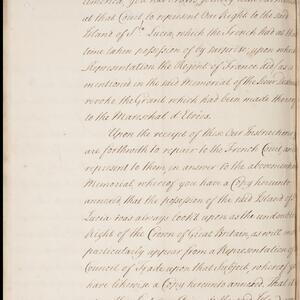 at that Court to represent Our Right to the said
Island of St. Lucia, which the French had at that
time taken possession of by surprise; upon which
Representation the Regent of France did, as is
mentioned in the said Memorial of the Sieur
revoke the Grant which had been made thereof
to the Marechal d'Etrées.
Upon the receipt of these Our Instructions
are forthwith to repair to the French Court, and
represent to them, in answer to the abovemention
Memorial, whereof you have a Copy hereunto
annexed, that the possession of the said Island of
Lucia was always look'd upon as the undoubted
Right of the Crown of Great Britain, as will
particularly appear from a Representation of
Council of Trade upon that Subject, whereof you
have likewise a Copy hereunto annexed, that it